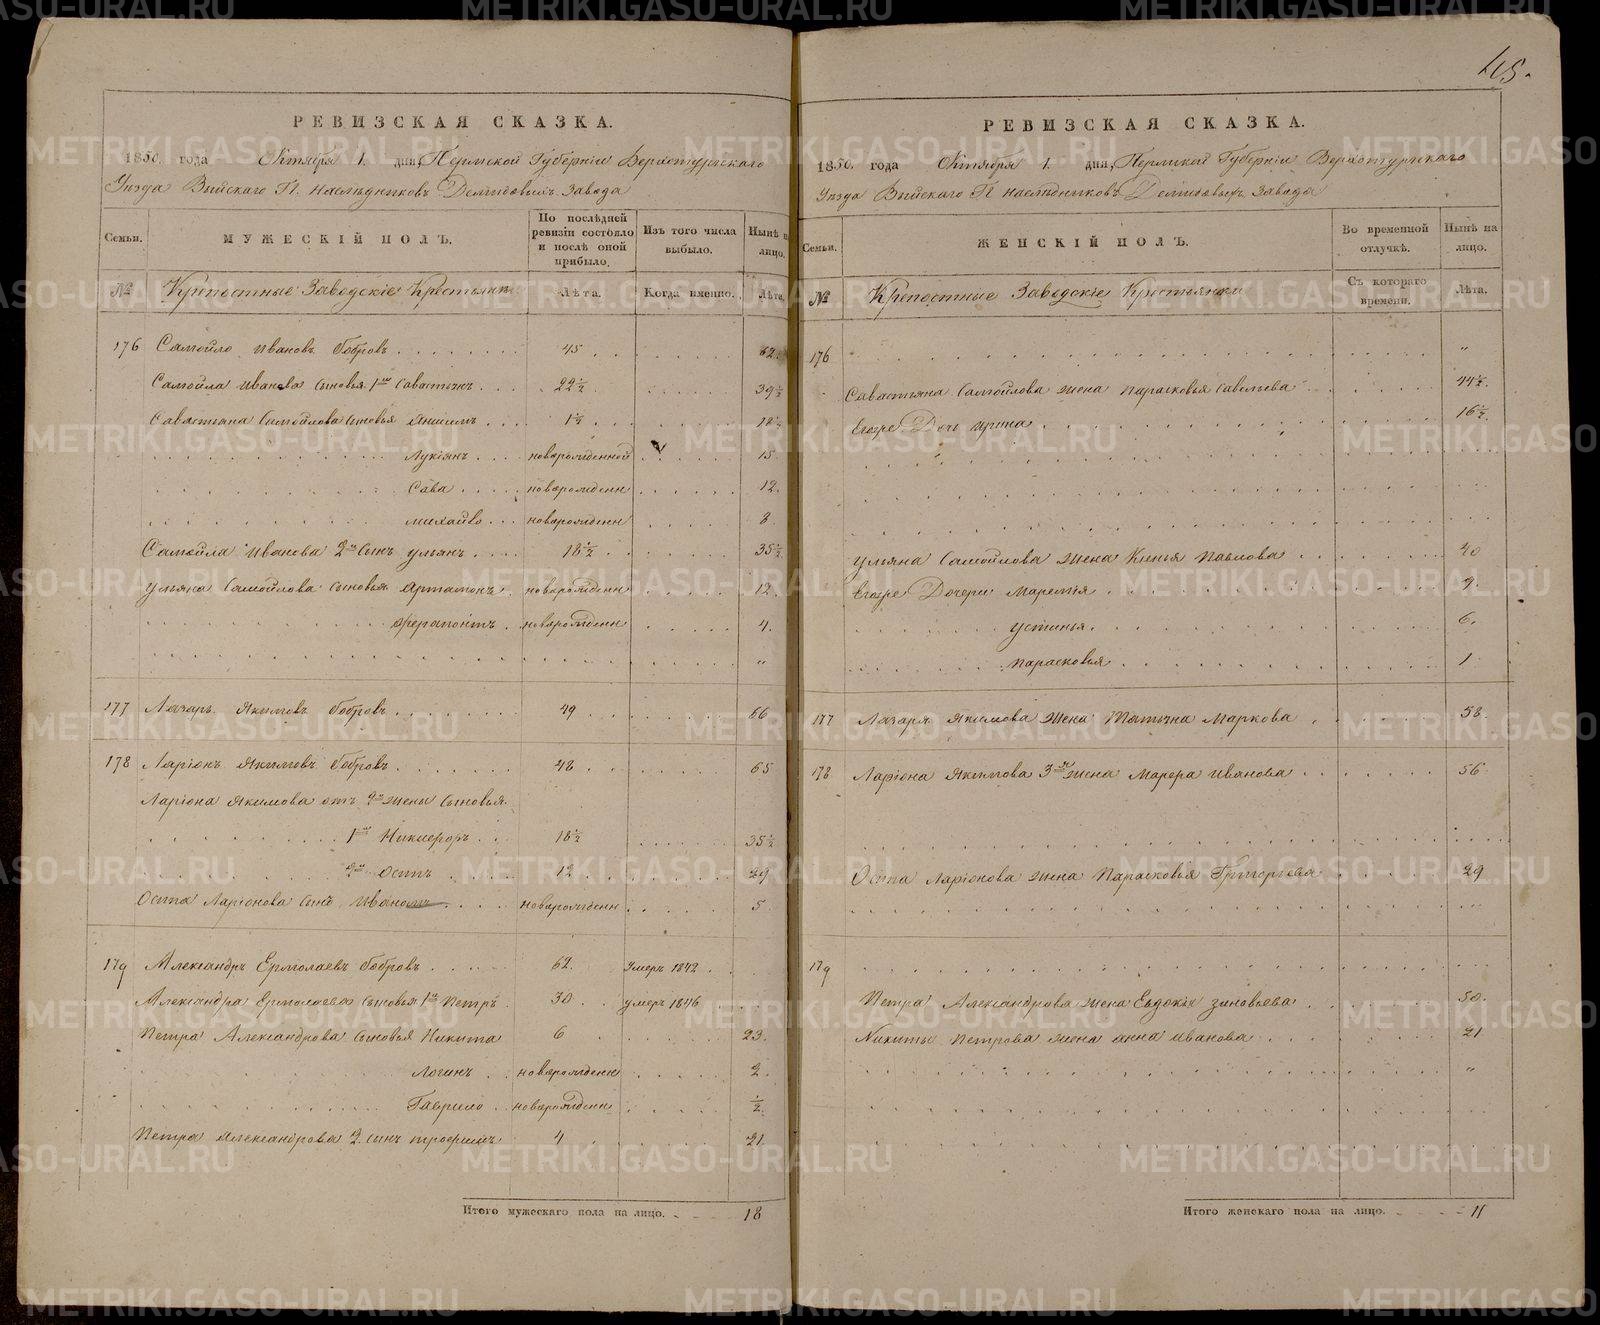 45.
РЕВИЗСКАЯ СКАЗКА.
1850. года Октября 1. дня, Пермской Губерніи Верхотурскаго
Уезда Выйскаго Гг. наследниковъ Демидовыхъ Завода
Семьи. МУЖЕСКІЙ ПОЛЪ. По послѣдней ревизіи состояло и послѣ оной прибыло. Изъ того числа выбыло. Нынѣ на лицо.
№ Крѣпостные Заводскіе Крестьяне Лѣта. Когда именно. Лѣта.
176 Самойло Ивановъ Бобровъ 45 62.
Самойла Иванова сыновья 1й Савастьянъ 22½ 39½
Савастьяна Самойлова сыновья Анисимъ 1½ 18½
Лукіянъ новорожденной 15
Сава новорожденн 12.
Михайло новорожденн 8
Самойла Иванова 2й сынъ Ульянъ 18½ 35½
Ульяна Самойлова сыновья Артамонъ новорожденн 12
Ферапонтъ новорожденн 4.
"
177 Лазарь Якимовъ Бобровъ 49 66
178 Ларіонъ Якимовъ Бобровъ 48 65
Ларіона Якимова отъ 2й жены сыновья
1й Никифоръ 18½ 35½
2й Осипъ 12 29
Осипа Ларіонова сынъ Иванъ новорожденн 5
179 Александръ Ермолаевъ Бобровъ 62. умеръ 1842
Александра Ермолаева сыновья 1й Петръ 30 умеръ 1846
Петра Александрова сыновья Никита 6 23.
Логинъ новорожденн 2.
Гаврило новорожденн ½
Петра Александрова 2 сынъ Трофимъ 4 21
Итого мужескаго пола на лицо. 18
РЕВИЗСКАЯ СКАЗКА.
1850. года Октября 1. дня, Пермской Губерніи Верхотурскаго
Уезда Выйскаго Гг наследниковъ Демидовыхъ Завода
Семьи. ЖЕНСКІЙ ПОЛЪ. Во временной отлучкѣ. Нынѣ на лицо.
№ Крепостные Заводскіе Крестьянки Съ котораго времени. Лѣта.
176 "
Савастьяна Самойлова жена Парасковья Савельева 44½.
Евоже Дочь Ирина 16½.
Ульяна Самойлова жена Павлова 40
Евоже Дочери 9.
Устинья 6.
Парасковья 1
177 Лазаря Якимова жена Татьяна Маркова 58.
178 Ларіона Якимова 3я жена Марфа Иванова 56
Осипа Ларіонова жена Парасковья Григорьева 29
179
Петра Александрова жена Евдокія Зиновьева 50.
Никиты Петрова жена Анна Иванова 21
"
Итого женскаго пола на лицо. 11
METRIKI.GASO-URAL.RU